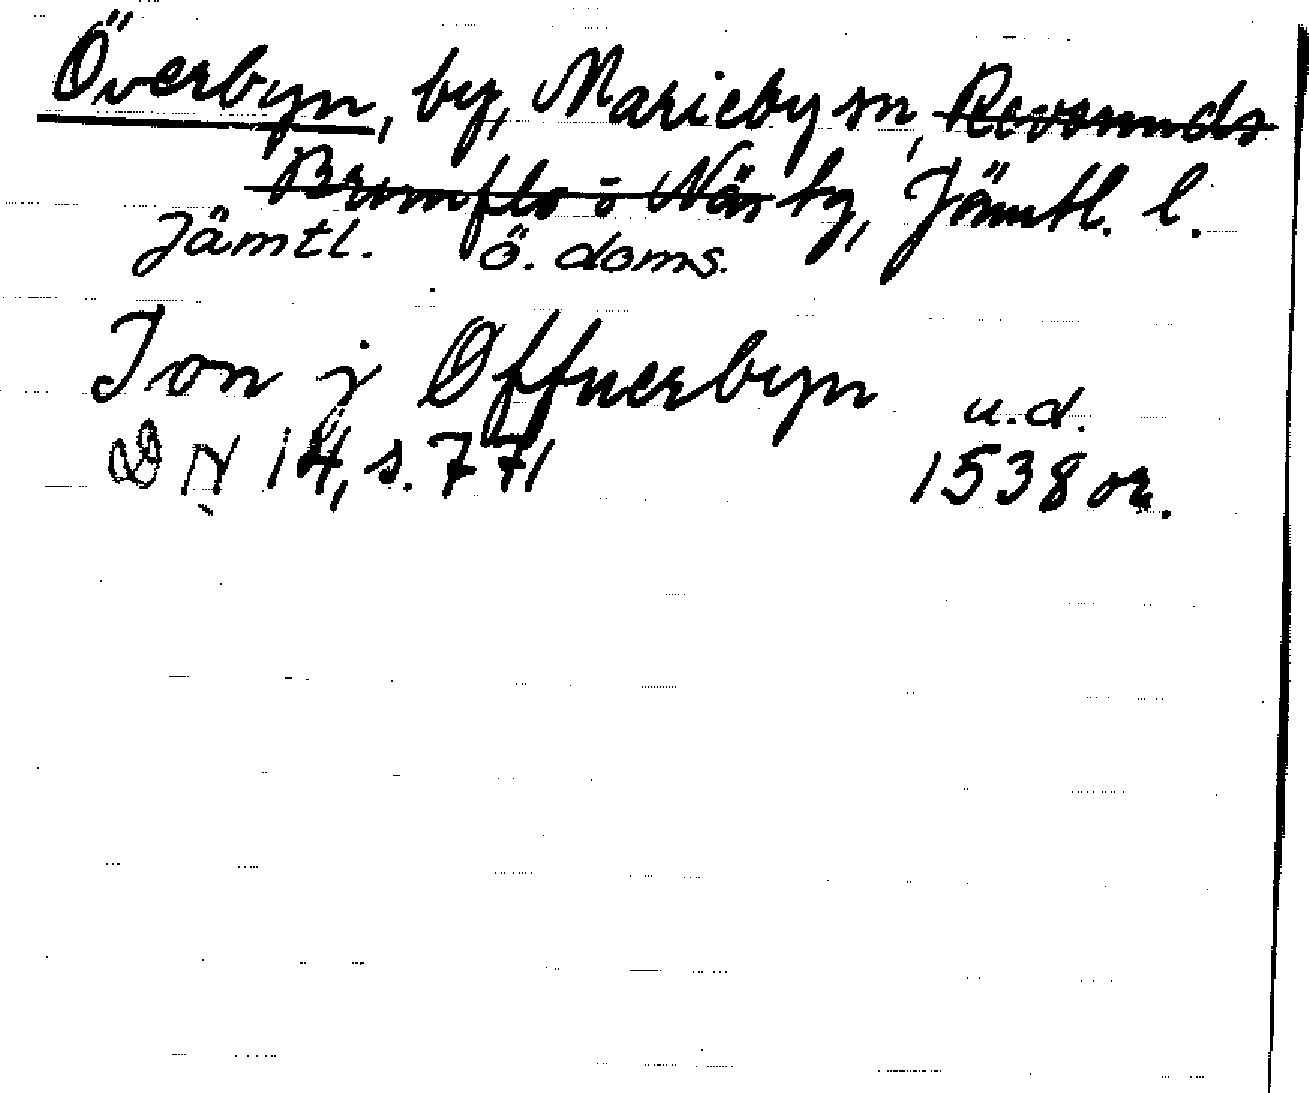 Överbyn, by, Marieby sn, Revsunds
Brunflo o Näs tg, Jämtl. l.
Jämtl. Ö. doms.
Jon j Øffuerbyn u.d.
DN 14, s. 771 1538 or.